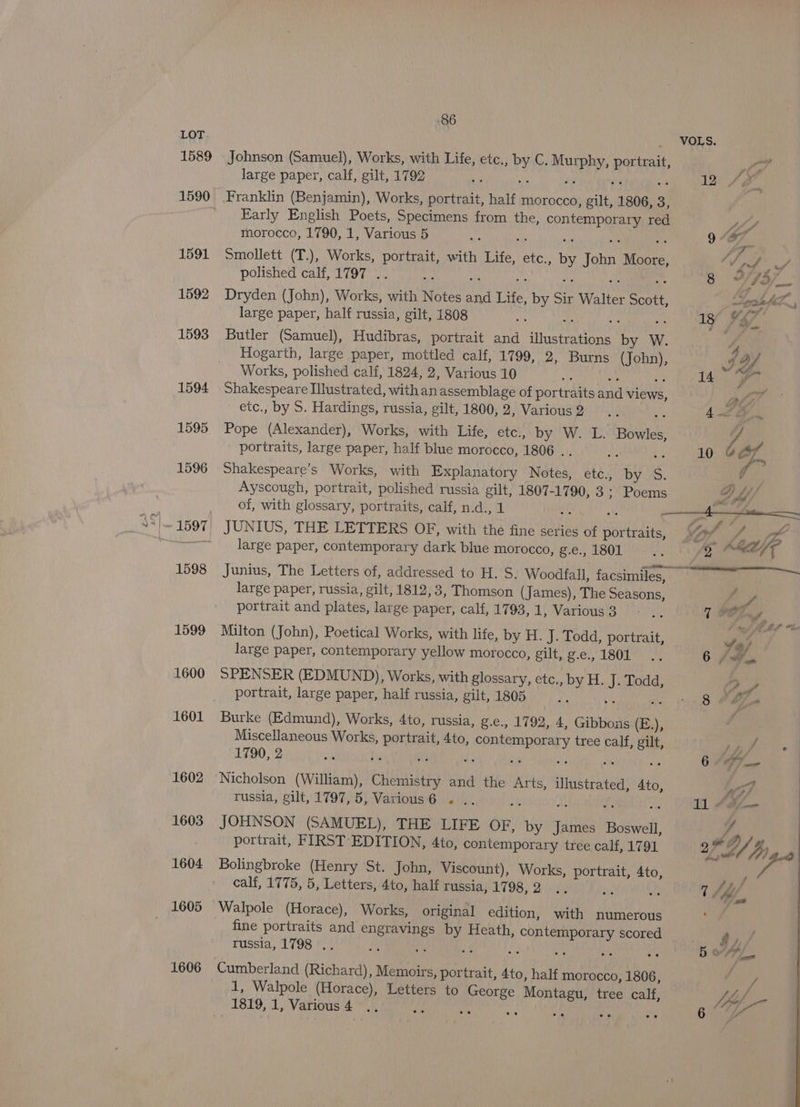 86
LOT VOLS.
1589 Johnson (Samuel), Works, with Life, etc., by C. Murphy, portrait,
large paper, calf, gilt, 1792 .. .. .. .. .. 12
1590 Franklin (Benjamin), Works, portrait, half morocco, gilt, 1806, 3,
Early English Poets, Specimens from the, contemporary red
morocco, 1790, 1, Various 5 .. .. .. .. 9
1591 Smollett (T.), Works, portrait, with Life, etc., by John Moore,
polished calf, 1797 .. .. .. .. .. .. 8
1592 Dryden (John), Works, with Notes and Life, by Sir Walter Scott,
large paper, half russia, gilt, 1808 .. .. .. 18
1593 Butler (Samuel), Hudibras, portrait and illustrations by W.
Hogarth, large paper, mottled calf, 1799, 2, Burns (John),
Works, polished calf, 1824, 2, Various 10 .. .. .. 14
1594 Shakespeare Illustrated, with an assemblage of portraits and views,
etc., by S. Hardings, russia, gilt, 1800, 2, Various 2 .. .. 4
1595 Pope (Alexander), Works, with Life, etc., by W. L. Bowles,
portraits, large paper, half blue morocco, 1806 .. .. .. 10
1596 Shakespeare's Works, with Explanatory Notes, etc., by S.
Ayscough, portrait, polished russia gilt, 1807-1790, 3; Poems
of, with glossary, portraits, calf, n.d., 1 .. .. 4
1597 JUNIUS, THE LETTERS OF, with the fine series of portraits,
large paper, contemporary dark blue morocco, g.e., 1801 .. 2
1598 Junius, The Letters of, addressed to H. S. Woodfall, facsimiles,
large paper, russia, gilt, 1812, 3, Thomson (James), The Seasons,
portrait and plates, large paper, calf, 1793, 1, Various 3 .. 7
1599 Milton (John), Poetical Works, with life, by H. J. Todd, portrait,
large paper, contemporary yellow morocco, gilt, g.e., 1801 .. 6
1600 SPENSER (EDMUND), Works, with glossary, etc., by H. J. Todd,
portrait, large paper, half russia, gilt, 1805 .. .. .. 8
1601 Burke (Edmund), Works, 4to, russia, g.e., 1792, 4, Gibbons (E.),
Miscellaneous Works, portrait, 4to, contemporary tree calf, gilt,
1790, 2 .. .. .. .. .. .. .. 6
1602 Nicholson (William), Chemistry and the Arts, illustrated, 4to,
russia, gilt, 1797, 5, Various 6 .. .. .. .. .. 11
1603 JOHNSON (SAMUEL), THE LIFE OF, by James Boswell,
portrait, FIRST EDITION, 4to, contemporary tree calf, 1791 2
1604 Bolingbroke (Henry St. John, Viscount), Works, portrait, 4to,
calf, 1775, 5, Letters, 4to, half russia, 1798, 2 .. .. .. 7
1605 Walpole (Horace), Works, original edition, with numerous
fine portraits and engravings by Heath, contemporary scored
russia, 1798 .. .. .. .. .. .. .. 5
1606 Cumberland (Richard), Memoirs, portrait, 4to, half morocco, 1806,
1, Walpole (Horace), Letters to George Montagu, tree calf,
1819, 1, Various 4 .. .. .. .. .. .. 6